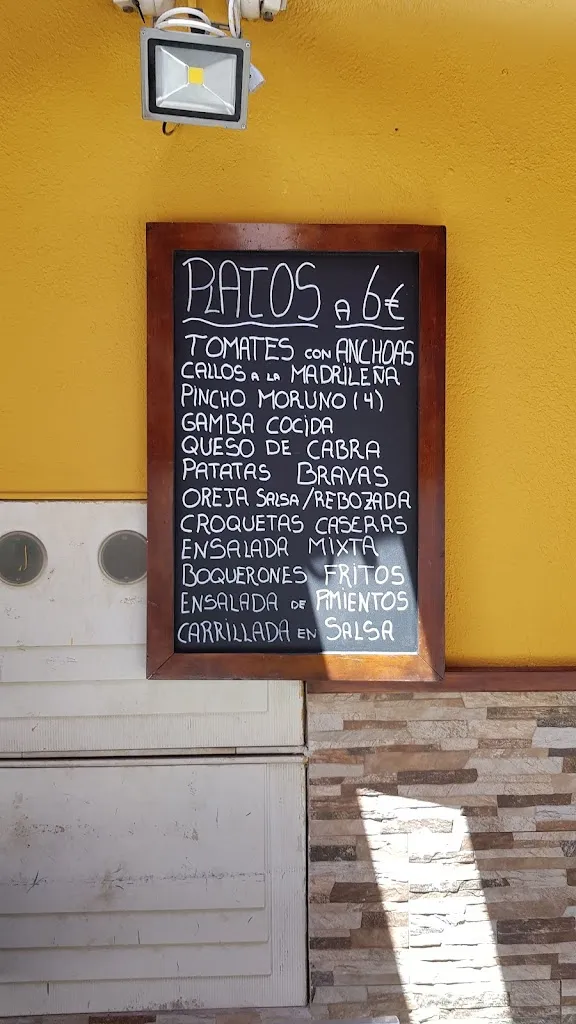 PLATOS A 6€
TOMATES CON ANCHOAS
CALLOS A LA MADRILEÑA
PINCHO MORUNO (4)
GAMBA COCIDA
QUESO DE CABRA
PATATAS BRAVAS
OREJA SALSA/REBOZADA
CROQUETAS CASERAS
ENSALADA MIXTA
BOQUERONES FRITOS
ENSALADA DE PIMIENTOS
CARRILLADA EN SALSA